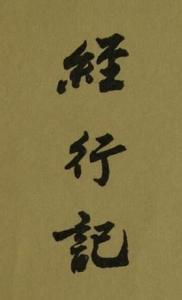 經行記